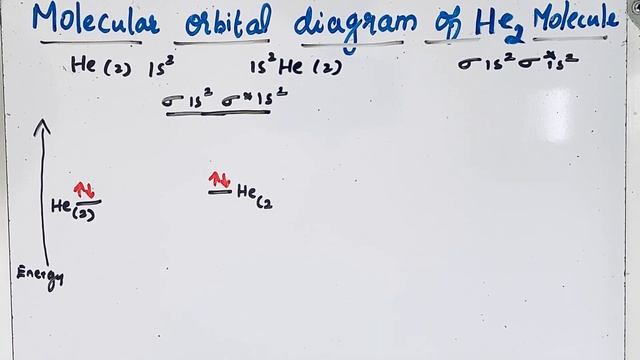 Molecular orbital diagram of He₂ Molecule
He (2) 1s² 1s² He (2) σ1s² σ*1s²
σ1s² σ*1s²
He(2) He(2
Energy